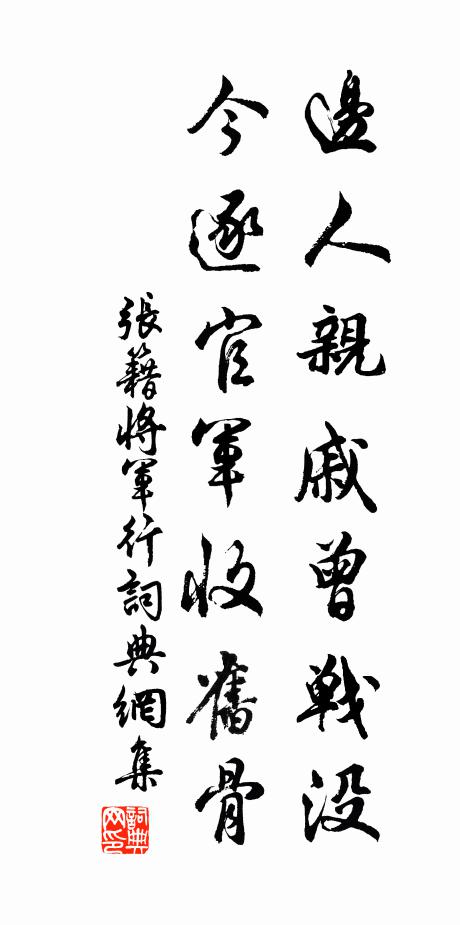 邊人親戚曾戰没
今逐官軍收舊骨
張籍將軍行詞典網集
詞典
网印